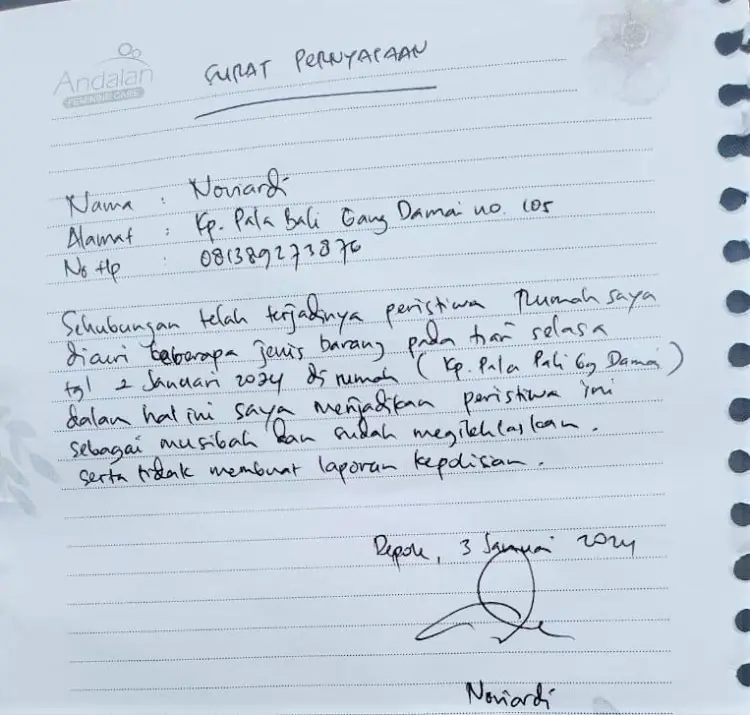 Andalan
FEMININE CARE
SURAT PERNYATAAN
Nama : Noviardi
Alamat : Kp. Pala Bali Gang Damai no. 105
No Hp : 081389273876
Sehubungan telah terjadinya peristiwa Rumah saya
dicuri beberapa jenis barang pada hari selasa
tgl 2 Januari 2024 di rumah (Kp. Pala Pali Gg Damai)
dalam hal ini saya menjadikan peristiwa ini
sebagai musibah dan sudah megikhlaskan.
serta tidak membuat laporan kepolisan.
Depok, 3 Januari 2024
Noviardi